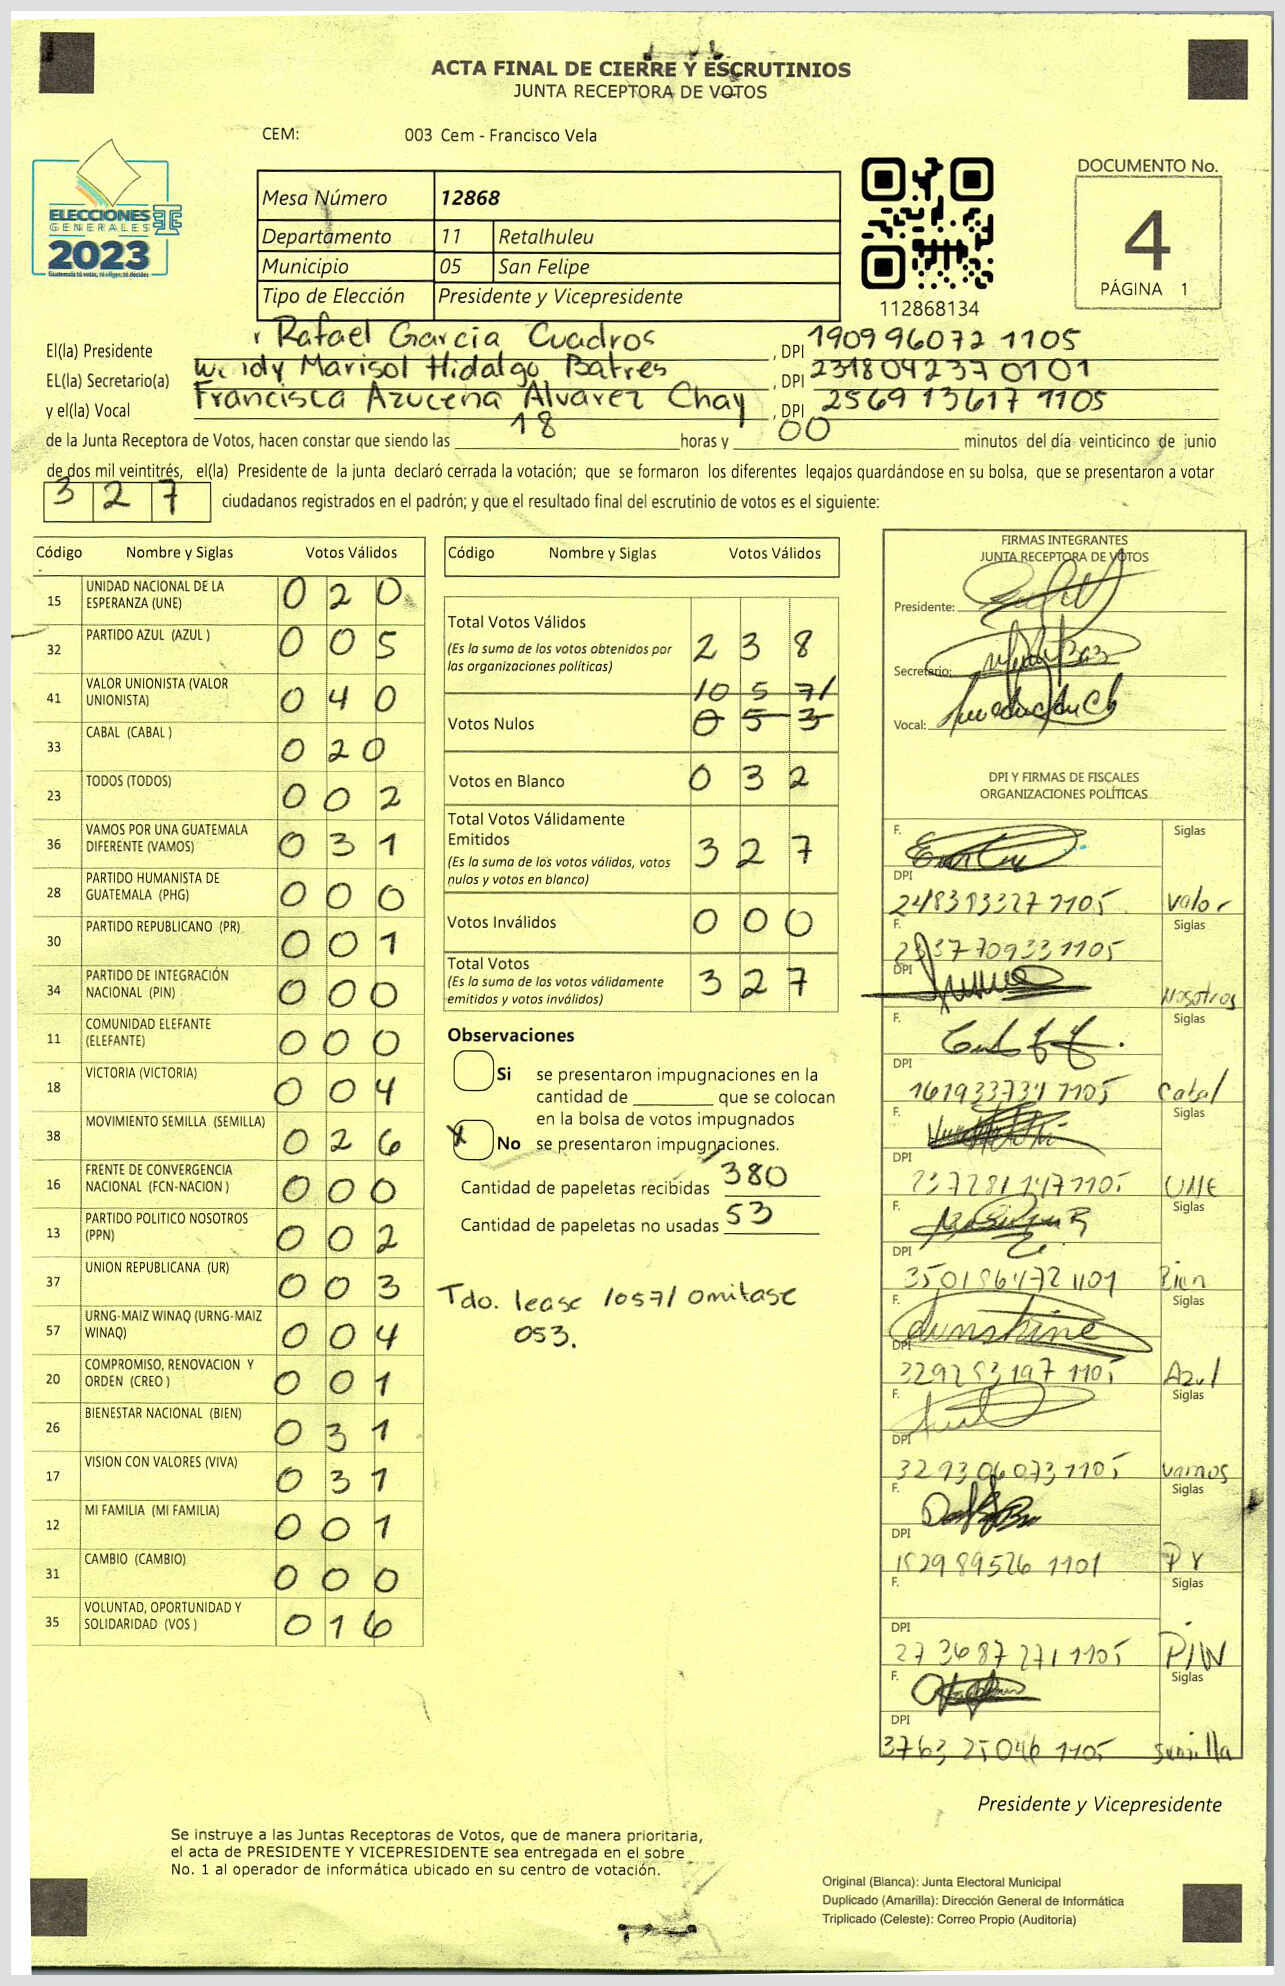 ACTA FINAL DE CIERRE Y ESCRUTINIOS
JUNTA RECEPTORA DE VOTOS
CEM: 003 Cem - Francisco Vela
ELECCIONES
GENERALES
2023
Guatemala tú votas, tú eliges, tú decides
Mesa Número 12868
Departamento 11 Retalhuleu
Municipio 05 San Felipe
Tipo de Elección Presidente y Vicepresidente
112868134
DOCUMENTO No.
4
PÁGINA 1
El(la) Presidente Rafael Garcia Cuadros, DPI 190996072 1105
EL(la) Secretario(a) Marisol Hidalgo Batres, DPI 231804237 0101
y el(la) Vocal Francisca Azucena Alvarez Chay, DPI 256913617 1105
de la Junta Receptora de Votos, hacen constar que siendo las 18 horas y 00 minutos del día veinticinco de junio
de dos mil veintitrés, el(la) Presidente de la junta declaró cerrada la votación; que se formaron los diferentes legajos guardándose en su bolsa, que se presentaron a votar
327 ciudadanos registrados en el padrón; y que el resultado final del escrutinio de votos es el siguiente:
Código Nombre y Siglas Votos Válidos
15 UNIDAD NACIONAL DE LA ESPERANZA (UNE) 0 2 0
32 PARTIDO AZUL (AZUL ) 0 0 5
41 VALOR UNIONISTA (VALOR UNIONISTA) 0 4 0
33 CABAL (CABAL ) 0 2 0
23 TODOS (TODOS) 0 0 2
36 VAMOS POR UNA GUATEMALA DIFERENTE (VAMOS) 0 3 1
28 PARTIDO HUMANISTA DE GUATEMALA (PHG) 0 0 0
30 PARTIDO REPUBLICANO (PR) 0 0 1
34 PARTIDO DE INTEGRACIÓN NACIONAL (PIN) 0 0 0
11 COMUNIDAD ELEFANTE (ELEFANTE) 0 0 0
18 VICTORIA (VICTORIA) 0 0 4
38 MOVIMIENTO SEMILLA (SEMILLA) 0 2 6
16 FRENTE DE CONVERGENCIA NACIONAL (FCN-NACION ) 0 0 0
13 PARTIDO POLITICO NOSOTROS (PPN) 0 0 2
37 UNION REPUBLICANA (UR) 0 0 3
57 URNG-MAIZ WINAQ (URNG-MAIZ WINAQ) 0 0 4
20 COMPROMISO, RENOVACION Y ORDEN (CREO ) 0 0 1
26 BIENESTAR NACIONAL (BIEN) 0 3 1
17 VISION CON VALORES (VIVA) 0 3 1
12 MI FAMILIA (MI FAMILIA) 0 0 1
31 CAMBIO (CAMBIO) 0 0 0
35 VOLUNTAD, OPORTUNIDAD Y SOLIDARIDAD (VOS ) 0 1 6
Código Nombre y Siglas Votos Válidos
Total Votos Válidos
(Es la suma de los votos obtenidos por
las organizaciones políticas)
2 3 8
/0 5 7/
Votos Nulos 0 5 3
Votos en Blanco 0 3 2
Total Votos Válidamente
Emitidos
(Es la suma de los votos válidos, votos
nulos y votos en blanco)
3 2 7
Votos Inválidos 0 0 0
Total Votos
(Es la suma de los votos válidamente
emitidos y votos inválidos)
3 2 7
Observaciones
Si se presentaron impugnaciones en la
cantidad de ________ que se colocan
en la bolsa de votos impugnados
X No se presentaron impugnaciones.
Cantidad de papeletas recibidas 380
Cantidad de papeletas no usadas 53
Tdo. lease /057/ omitase
053.
FIRMAS INTEGRANTES
JUNTA RECEPTORA DE VOTOS
Presidente:
Secretario:
Vocal:
DPI Y FIRMAS DE FISCALES
ORGANIZACIONES POLÍTICAS
F. Siglas
DPI
Valor
F. Siglas
DPI
Nosotros
F. Siglas
DPI
Cabal
F. Siglas
DPI
UNE
F. Siglas
DPI
Bien
F. Siglas
Sunshine
DPI
Azul
F. Siglas
DPI
329306073 1105 vamos
F. Siglas
DPI
F. Siglas
DPI
273687271 1105 PIN
F. Siglas
DPI
3763 25046 1105 Semilla
Presidente y Vicepresidente
Se instruye a las Juntas Receptoras de Votos, que de manera prioritaria,
el acta de PRESIDENTE Y VICEPRESIDENTE sea entregada en el sobre
No. 1 al operador de informática ubicado en su centro de votación.
Original (Blanca): Junta Electoral Municipal
Duplicado (Amarilla): Dirección General de Informática
Triplicado (Celeste): Correo Propio (Auditoría)